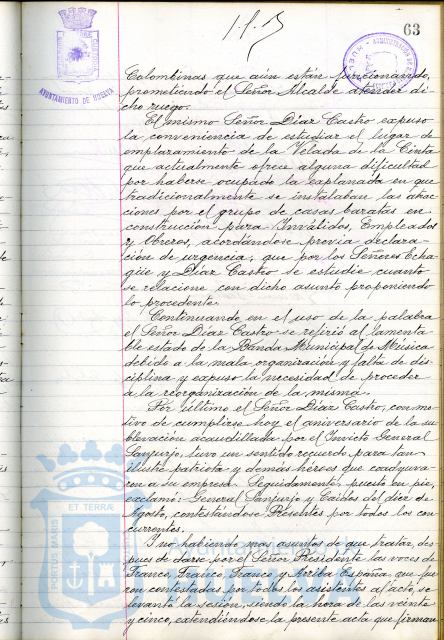 63
AYUNTAMIENTO DE HUELVA
Colombinas que aún están funcionando,
prometiendo el Señor Alcalde atender di-
cho ruego.
El mismo Señor Díaz Castro expuso
la conveniencia de estudiar el lugar de
emplazamiento de la Velada de la Cinta
que actualmente ofrece alguna dificultad
por haberse ocupado la explanada en que
tradicionalmente se instalaban las atrac-
ciones por el grupo de casas baratas en
construcción para Inválidos, Empleados
y Obreros, acordándose previa declara-
ción de urgencia, que por los Señores Echa-
güe y Díaz Castro se estudie cuanto
se relacione con dicho asunto proponiendo
lo procedente.
Continuando en el uso de la palabra
el Señor Díaz Castro se refirió al lamenta-
ble estado de la Banda Municipal de Música
debido a la mala organización y falta de dis-
ciplina y expuso la necesidad de proceder
a la reorganización de la misma.
Por último el Señor Díaz Castro, con mo-
tivo de cumplirse hoy el aniversario de la su-
blevación acaudillada por el Invicto General
Sanjurjo, tuvo un sentido recuerdo para tan
ilustre patriota y demás héroes que coadyuva-
ron a su empresa. Seguidamente, puesto en pie,
exclamó: General Sanjurjo y Caídos del diez de
Agosto, contestándose Presentes por todos los con-
currentes.
Y no habiendo mas asuntos de que tratar, des-
pues de darse por el Señor Presidente las voces de
Franco, Franco, Franco y Arriba España, que fue-
ron contestadas por todos los asistentes al acto, se
levantó la sesión, siendo la hora de las veinte
y cinco, extendiéndose la presente acta que firman
PORTUS MARIS ET TERRÆ